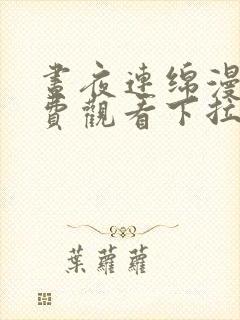 晝夜連綿漫
費觀看下拉
葉蘿蘿